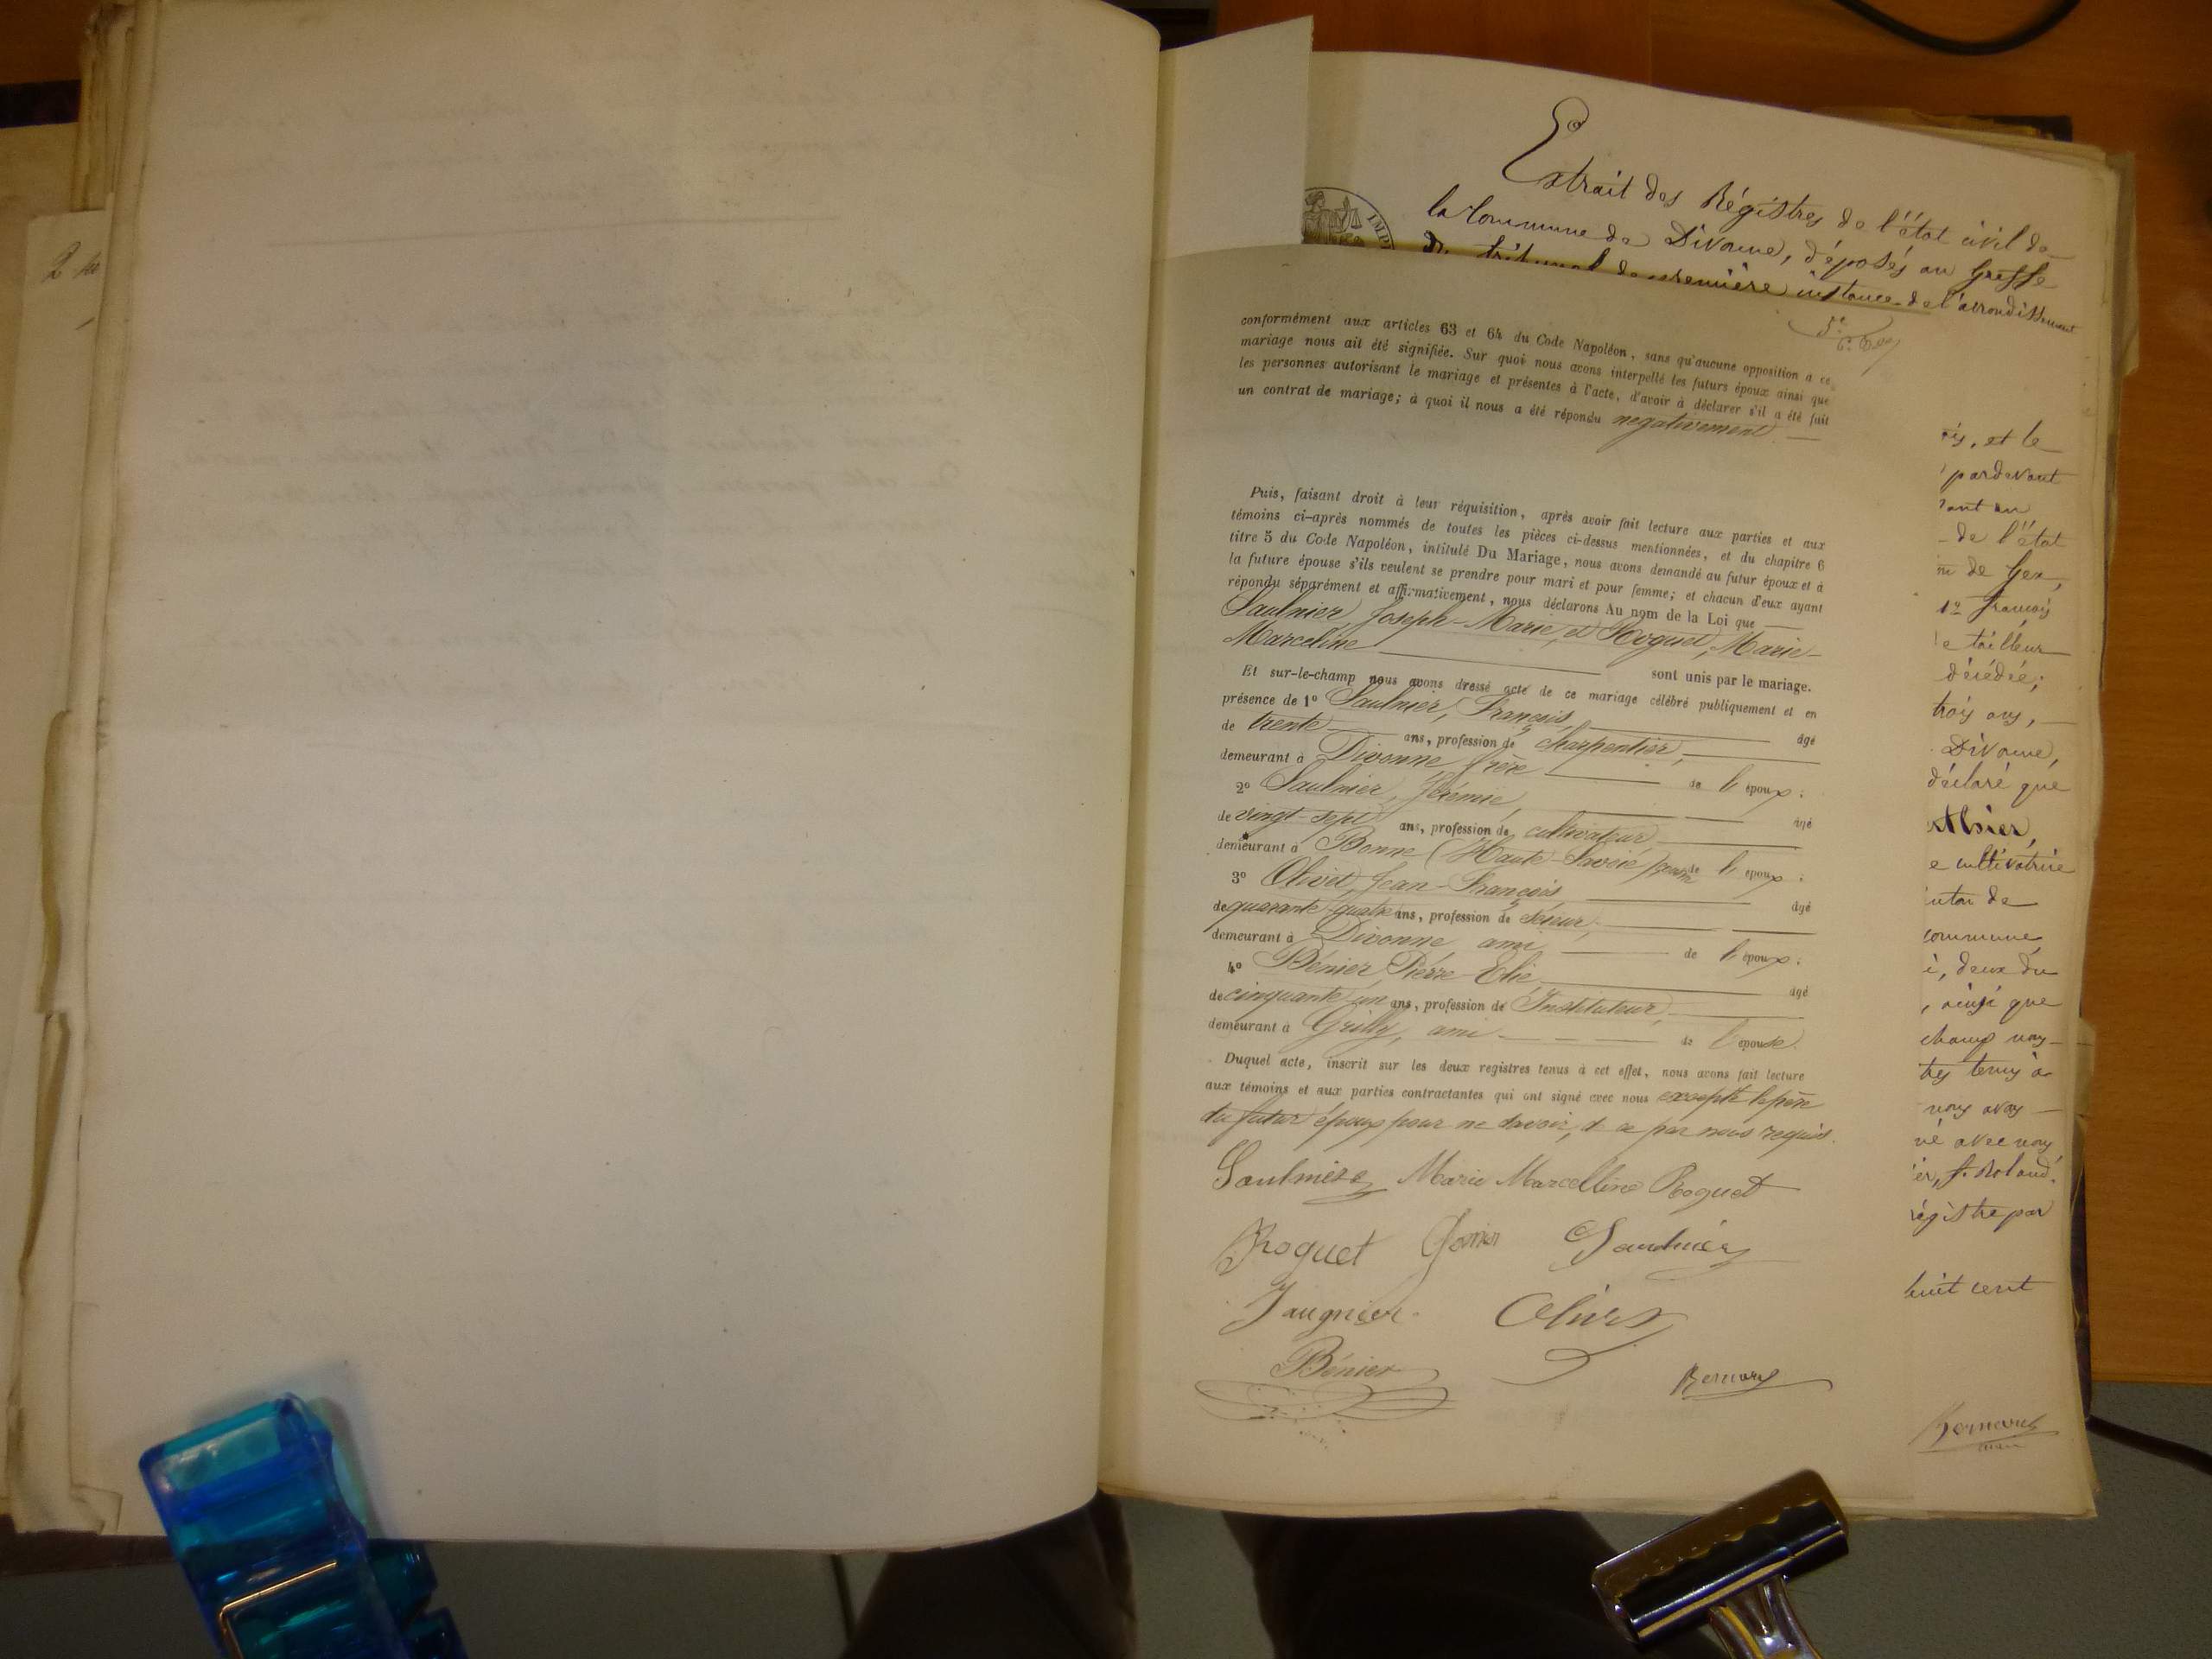 Extrait des Régistres de l'état civil de
la Commune de Divonne, déposés au Greffe
du tribunal de première instance de l'arrondissement
IMPE
conformément aux articles 63 et 64 du Code Napoléon, sans qu'aucune opposition a ce
mariage nous ait été signifiée. Sur quoi nous avons interpellé les futurs époux ainsi que
les personnes autorisant le mariage et présentes à l'acte, d'avoir à déclarer s'il a été fait
un contrat de mariage; à quoi il nous a été répondu négativement
Puis, faisant droit à leur réquisition, après avoir fait lecture aux parties et aux
témoins ci-après nommés de toutes les pièces ci-dessus mentionnées, et du chapitre 6
titre 5 du Code Napoléon, intitulé Du Mariage, nous avons demandé au futur époux et à
la future épouse s'ils veulent se prendre pour mari et pour femme; et chacun d'eux ayant
répondu séparément et affirmativement, nous déclarons Au nom de la Loi que
Saulnier, Joseph-Marie, et Roguet, Marie-
Marceline
sont unis par le mariage.
Et sur-le-champ nous avons dressé acte de ce mariage célébré publiquement et en
présence de 1° Saulnier, François, âgé
de trente ans, profession de charpentier,
demeurant à Divonne, frère de l'époux;
2° Saulnier, Jérémie, âgé
de vingt-sept ans, profession de cultivateur
demeurant à Bonne (Haute-Savoie) de l'époux;
3° Olivet, Jean-François âgé
de quarante-quatre ans, profession de scieur,
demeurant à Divonne, ami de l'époux;
4° Bénier, Pierre-Elie, âgé
de cinquante-un ans, profession de Instituteur,
demeurant à Grilly, ami de l'épouse.
Duquel acte, inscrit sur les deux registres tenus à cet effet, nous avons fait lecture
aux témoins et aux parties contractantes qui ont signé avec nous excepté le père
du futur époux pour ne savoir, de ce par nous requis.
Saulnier Marie Marcelline Roguet
Roguet Saulnier
Jaugnier Olivet
Bénier
et le
pardevant
de l'état
de Gex,
1° François
tailleur
décédée;
trois ans,
Divonne,
déclaré que
cultivatrice
de
commune,
deux du
ainsi que
champ nous
tenus à
nous avons
avec nous
f. Roland.
régistre par
huit cent